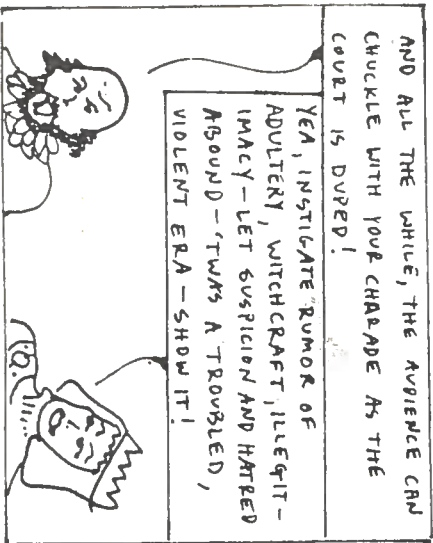 AND ALL THE WHILE, THE AUDIENCE CAN
CHUCKLE WITH YOUR CHARADE AS THE
COURT IS DUPED!
YEA, INSTIGATE RUMOR OF
ADULTERY, WITCHCRAFT, ILLEGIT-
IMACY - LET SUSPICION AND HATRED
ABOUND - 'TWAS A TROUBLED,
VIOLENT ERA - SHOW IT!